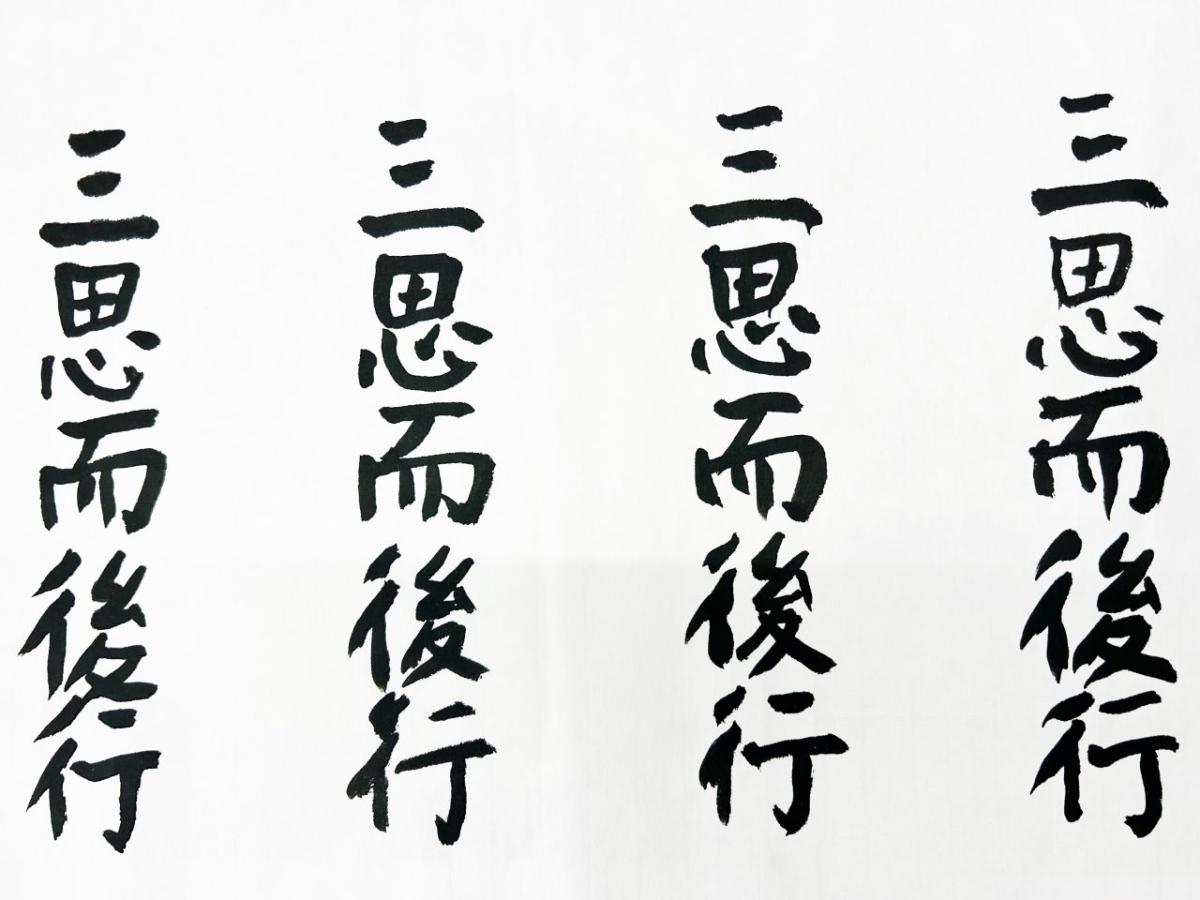 三思而後行
三思而後行
三思而後行
三思而後行